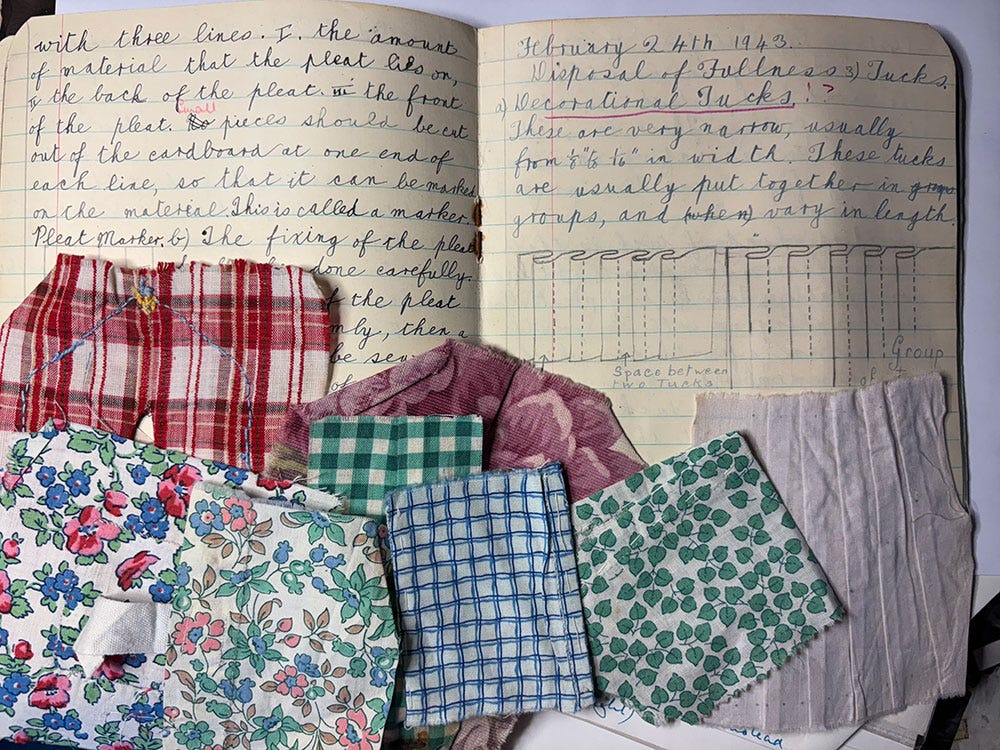 with three lines. I. the amount
of material that the pleat lies on,
II the back of the pleat. III the front
of the pleat. Small pieces should be cut
out of the cardboard at one end of
each line, so that it can be marked
on the material. This is called a marker
Pleat Marker. b) The fixing of the pleat
done carefully.
the pleat
then a
be
of
February 24th 1943.
Disposal of Fullness 3) Tucks.
a) Decorational Tucks !?
These are very narrow, usually
from 1/8" to 1/16" in width. These tucks
are usually put together in
groups, and (when) vary in length.
Space between
two Tucks
Group
of